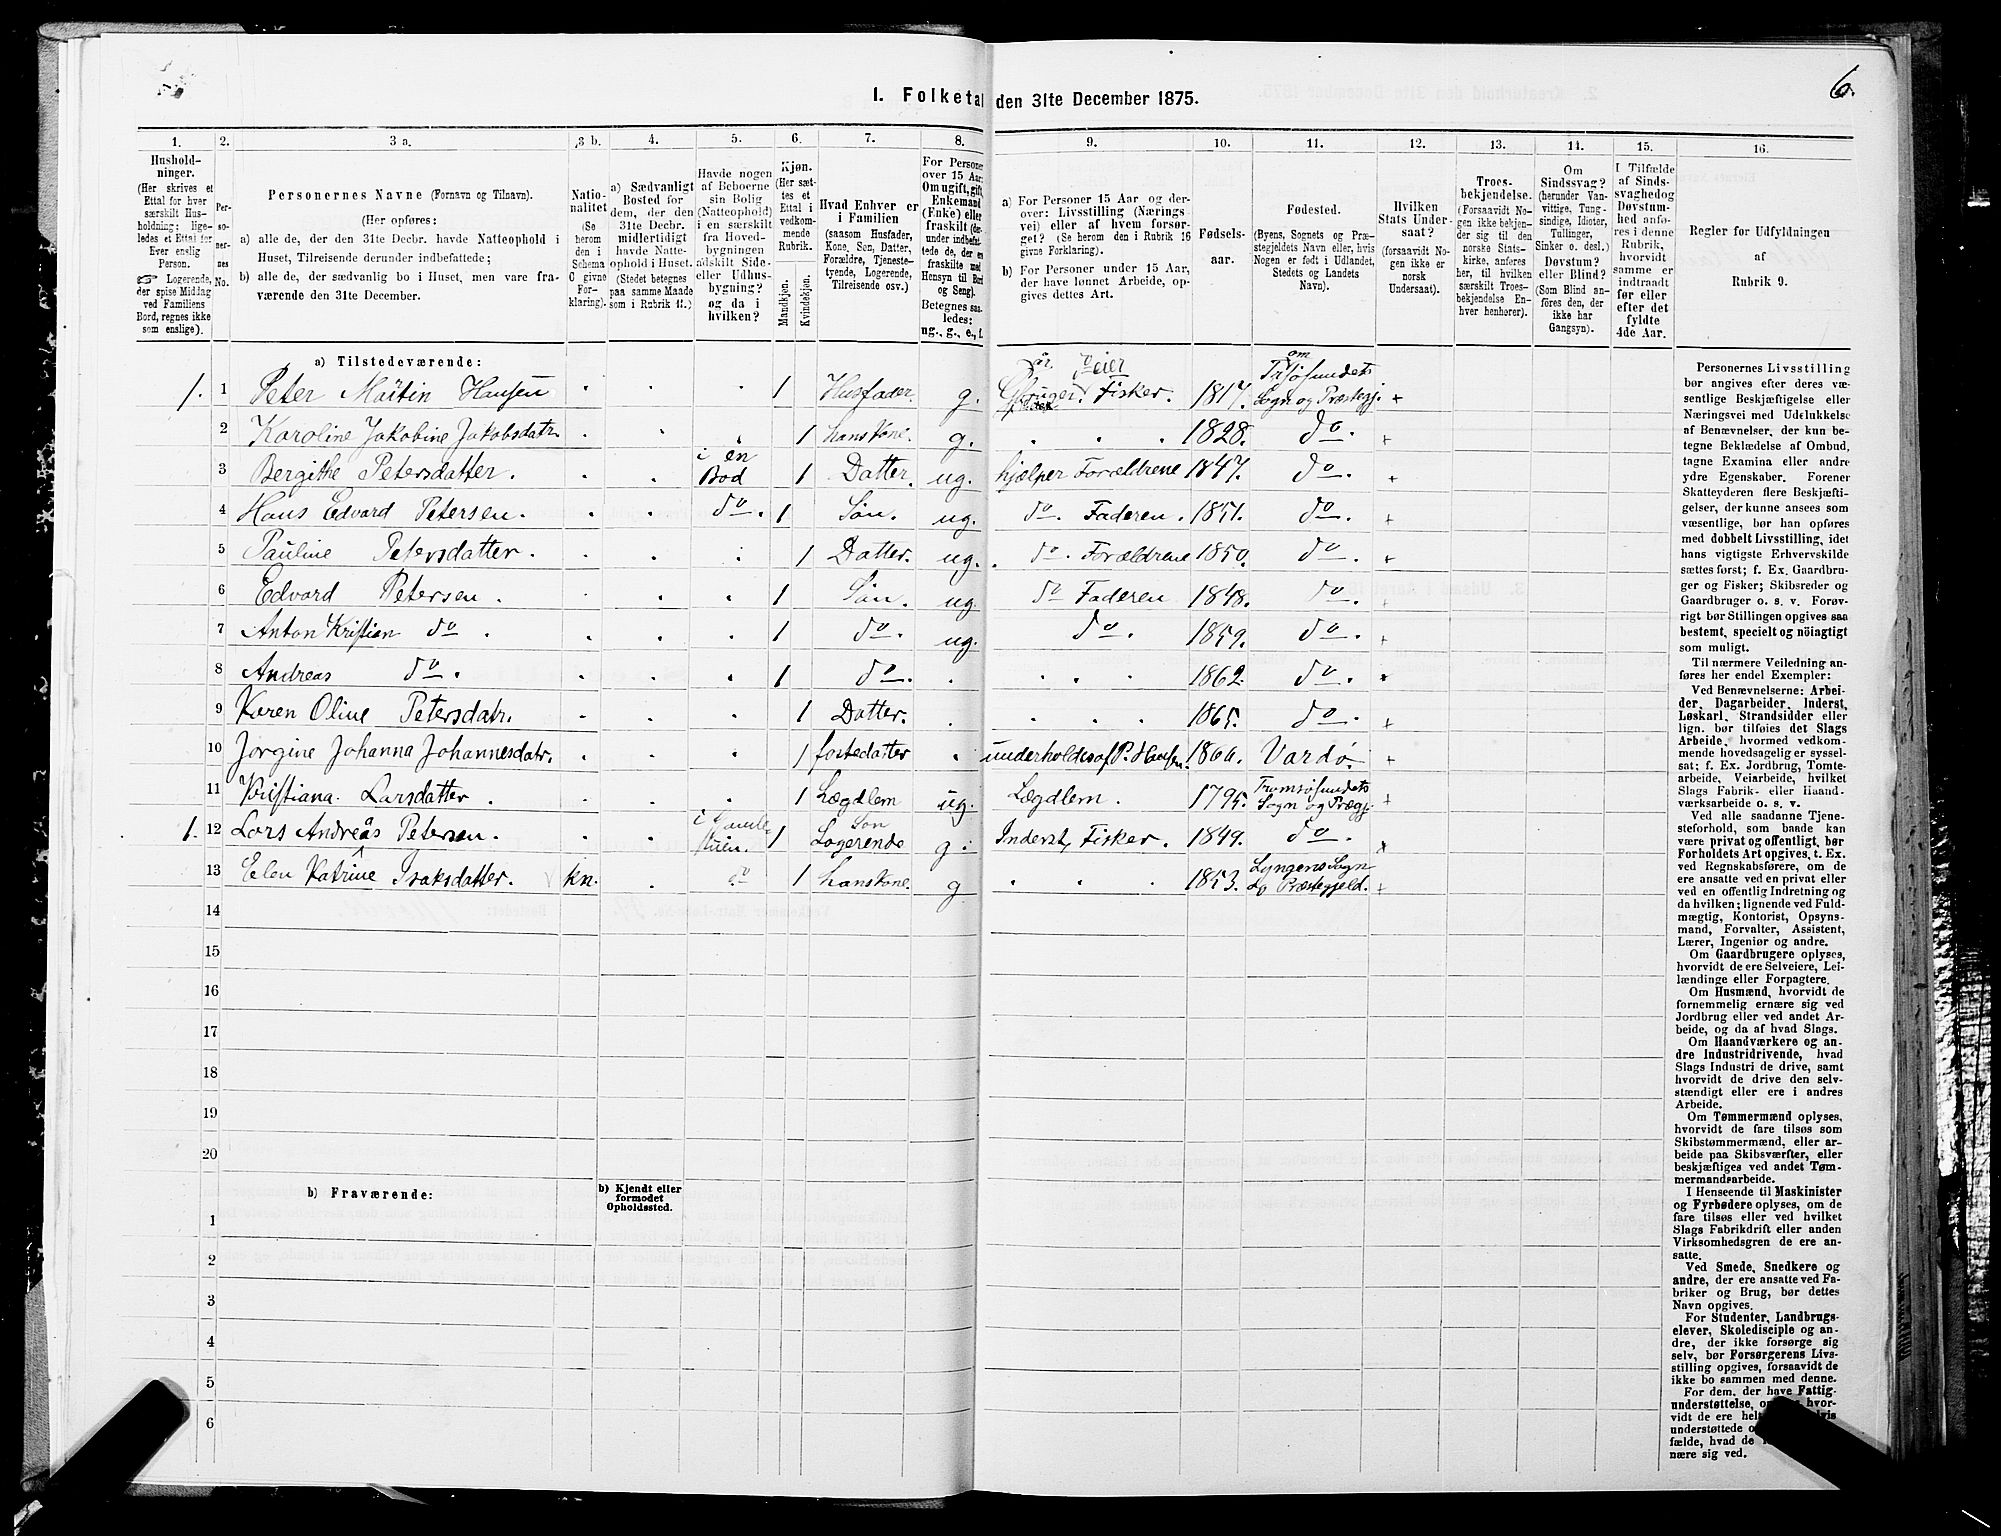 6.
1. Folketal den 31te December 1875.
1. 2. 3 a. 3 b. 4. 5. 6. 7. 8. 9. 10. 11. 12. 13. 14. 15. 16.
Hushold-
ninger.
(Her skrives et
Ettal for hver
særskilt Hus-
holdning; lige-
ledes et Ettal for
Ever enslig
Person.
Logerende,
der spise Middag
ved Familiens
Bord, regnes ikke
som enslige).
Per-
so-
ner-
nes
No.
Personernes Navne (Fornavn og Tilnavn).
(Her opføres:
a) alle de, der den 31te Decbr. havde Natteophold i
Huset, Tilreisende derunder indbefattede;
b) alle de, der sædvanlig bo i Huset, men vare fra-
værende den 31te December.
Natio-
nalitet
(Se
herom
den i
Schema
O givne
For-
klaring).
a) Sædvanligt
Bosted for
dem, der den
31te Decbr.
midlertidigt
havde Natte-
ophold i Huset.
(Stedet betegnes
paa samme Maade
som i Rubrik 11.)
Havde nogen
af Beboerne
sin Bolig
(Natteophold)
i en særskilt
fra Hoved-
bygningen
adskilt Side-
eller Udhus-
bygning?
og da i
hvilken?
Kjøn.
(Her sæt-
tes et
Ettal i
vedkom-
mende
Rubrik.
Mandkjøn.
Kvindekjøn.
Hvad Enhver er
i Familien
(saasom Husfader,
Kone, Søn, Datter,
Forældre, Tjeneste-
tyende, Logerende,
Tilreisende osv.)
For Personer
over 15 Aar:
Om ugift, gift,
Enkemand
(Enke) eller
fraskilt (der-
under indbefat-
tede de, der ere
fraskilte med
Hensyn til Bord
og Seng).
Betegnes saa-
ledes:
ug., g., e., f.
a) For Personer 15 Aar og der-
over: Livsstilling (Nærings-
vei) eller af hvem forsør-
get? (Se herom den i Rubrik 16
givne Forklaring).
b) For Personer under 15 Aar,
der have lønnet Arbeide, op-
gives dettes Art.
Fødsels-
aar.
Fødested.
(Byens, Sognets og Præ-
stegjeldets Navn eller, hvis
Nogen er født i Udlandet,
Stedets og Landets
Navn).
Hvilken
Stats Under-
saat?
(forsaavidt No-
gen ikke er
norsk
Undersaat).
Troes-
bekjendelse.
(Forsaavidt No-
gen ikke bekjen-
der sig til den
norske Stats-
kirke, anføres
her, til hvilken
særskilt Troes-
bekjendelse En-
hver henhører).
Om
Sindssvag?
(herunder Van-
vittige, Tung-
sindige, Idioter,
Tullinger,
Sinker o. desl.)
Døvstum?
eller Blind?
(Som Blind an-
føres den, der
ikke har
Gangsyn).
I Tilfælde
af Sinds-
svaghed og
Døvstum-
hed anfø-
res i denne
Rubrik,
hvorvidt
samme er
indtraadt
før eller
efter det
fyldte
4de Aar.
Regler for Udfyldningen
af
Rubrik 9.
a) Tilstedeværende:
1. 1 Peter Martin Hansen 1 Husfader. g. Gbruger, Fisker. 1817. Tromsøsundets Sogn og Præstegj.
2 Karoline Jakobine Jakobsdatr. 1 hans Kone. g. 1828. do.
3 Bergithe Petersdatter. i en Bod 1 Datter. ug. hjælper Forældrene 1847. do.
4 Hans Edvard Petersen. do. 1 Søn. ug. do. Faderen. 1851. do.
5 Pauline Petersdatter. 1 Datter. ug. do. Forældrene 1850. do.
6 Edvard Petersen. 1 Søn. ug. do Faderen 1848. do.
7 Anton Kristian do. 1 do. ug. do. 1859. do.
8 Andreas do. 1 do. 1862. do.
9 Karen Oline Petersdatr. 1 Datter. 1865. do.
10 Jorgine Johanna Johannesdatr. 1 fostedatter underholdes af P. Hansen. 1866. Vardø
11 Kristiana Larsdatter. 1 Lægdlem ug. Lægdlem. 1795. Tromsøsundets Sogn og Prægj.
1. 12 Lars Andreas Petersen. i Gamle stuen. 1 Søn Logerende g. Inderst, Fisker. 1849. do.
13 Elen Katrine Isaksdatter. kn. do 1 hans Kone. g 1853. Lyngens Sogn og Præstegjeld.
14
15
16
17
18
19
20
b) Fraværende:
b) Kjendt eller
formodet
Opholdssted.
1
2
3
4
5
6
Personernes Livsstilling
bør angives efter deres væ-
sentlige Beskjæftigelse eller
Næringsvei med Udelukkelse
af Benævnelser, der kun be-
tegne Beklædelse af Ombud,
tagne Examina eller andre
ydre Egenskaber. Forener
Skatteyderen flere Beskjæfti-
gelser, der kunne ansees som
væsentlige, bør han opføres
med dobbelt Livsstilling, idet
hans vigtigste Erhvervskilde
sættes først; f. Ex. Gaardbru-
ger og Fisker; Skibsreder og
Gaardbruger o. s. v. Forøv-
rigt bør Stillingen opgives saa
bestemt, specielt og nöiagtigt
som muligt.
Til nærmere Veiledning an-
føres her endel Exempler:
Ved Benævnelserne: Arbei-
der, Dagarbeider, Inderst,
Løskarl, Strandsidder eller
lign. bør tilføies det Slags
Arbeide, hvormed vedkom-
mende hovedsagelig er syssel-
sat; f. Ex. Jordbrug, Tomte-
arbeide, Veiarbeide, hvilket
Slags Fabrik- eller Haand-
værksarbeide o. s. v.
Ved alle saadanne Tjene-
steforhold, som baade kan
være privat og offentligt, bør
Forholdets Art opgives, t. Ex.
ved Regnskabsførere, om de
ere ansatte ved en privat eller
ved en offentlig Indretning og
da hvilken; lignende ved Fuld-
mægtig, Kontorist, Opsyns-
mand, Forvalter, Assistent,
Lærer, Ingeniør og andre.
Om Gaardbrugere oplyses,
hvorvidt de ere Selveiere, Lei-
lændinge eller Forpagtere.
Om Husmænd, hvorvidt de
fornemmelig ernære sig ved
Jordbrug eller ved andet Ar-
beide, og da af hvad Slags.
Om Haandværkere og an-
dre Industridrivende, hvad
Slags Industri de drive, samt
hvorvidt de drive den selv-
stændigt eller ere i andres
Arbeide.
Om Tømmermænd oplyses,
hvorvidt de fare tilsøs som
Skibstømmermænd, eller ar-
beide paa Skibsværfter, eller
beskjæftiges ved andet Tøm-
mermandsarbeide.
I Henseende til Maskinister
og Fyrbødere oplyses, om de
fare tilsøs eller ved hvilket
Slags Fabrikdrift eller anden
Virksomhedsgren de ere an-
satte.
Ved Smede, Snedkere og
andre, der ere ansatte ved Fa-
briker og Brug, bør dettes
Navn opgives.
For Studenter, Landbrugs-
elever, Skoledisciple og an-
dre, der ikke forsørge sig
selv, bør Forsørgerens Livs-
stilling opgives, forsaavidt de
ikke bo sammen med denne.
For dem, der have Fattig-
understøttelse, hvor-
vidt de ere
understøttede
fælde, hvad de
nære sig ved.